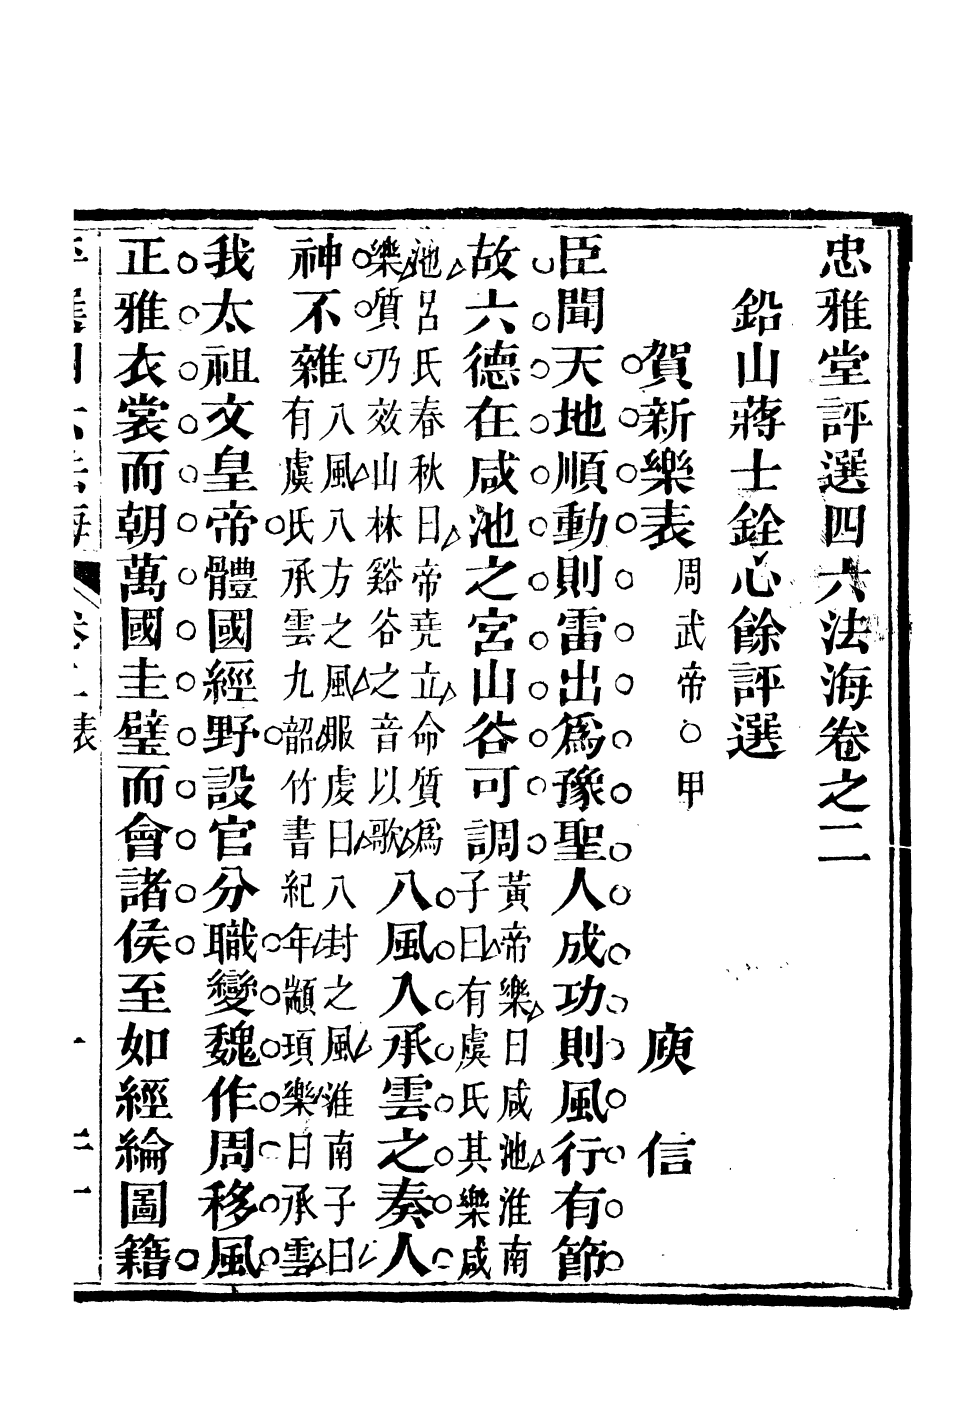 忠雅堂評選四六法海卷之二
鉛山蔣士銓心餘評選
賀新樂表 周武帝○甲 庾信
臣聞天地順動則雷出爲豫聖人成功則風行有節
故六德在咸池之宮山谷可調 黃帝樂曰咸池淮南
子曰有虞氏其樂咸
池呂氏春秋曰帝堯立命質爲
樂質乃效山林谿谷之音以歌 八風入承雲之奏人
神不雜 八風八方之風服虔曰八封之風淮南子曰
有虞氏承雲九韶竹書紀年顓頊樂曰承雲
我太祖文皇帝體國經野設官分職變魏作周移風
正雅衣裳而朝萬國圭璧而會諸侯至如經綸圖籍
評選四六法海 卷二 表 一 二一